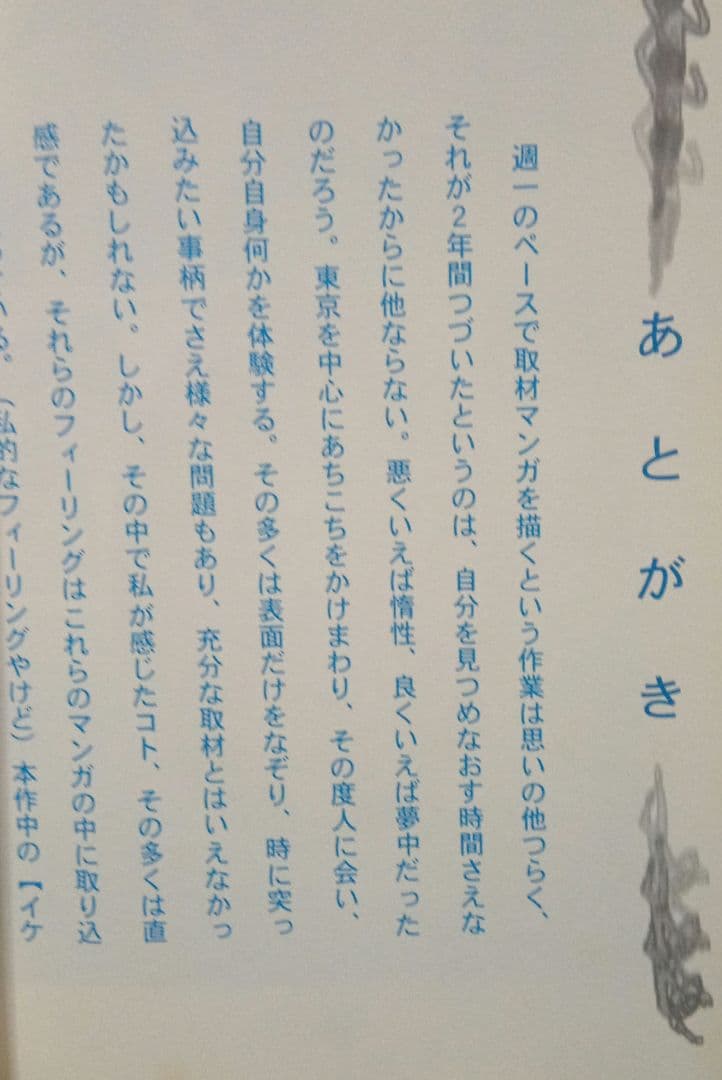 あとがき
週一のペースで取材マンガを描くという作業は思いの他つらく、
それが2年間つづいたというのは、自分を見つめなおす時間さえな
かったからに他ならない。悪くいえば惰性、良くいえば夢中だった
のだろう。東京を中心にあちこちをかけまわり、その度人に会い、
自分自身何かを体験する。その多くは表面だけをなぞり、時に突っ
込みたい事柄でさえ様々な問題もあり、充分な取材とはいえなかっ
たかもしれない。しかし、その中で私が感じたコト、その多くは直
感であるが、それらのフィーリングはこれらのマンガの中に取り込
いる。（私的なフィーリングやけど）本作中の【イケ